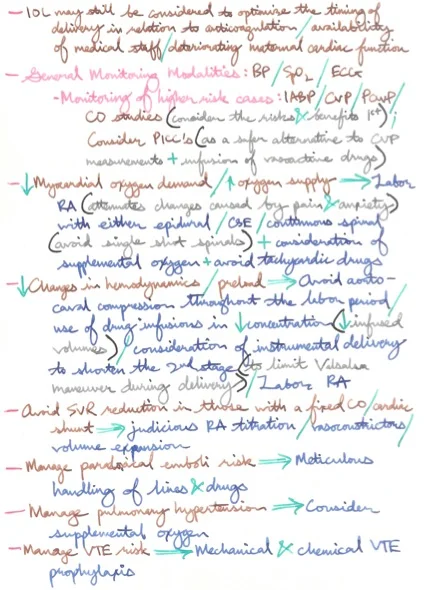 - IOL may still be considered to optimize the timing of
delivery in relation to anticoagulation/availability
of medical staff/deteriorating maternal cardiac function
- General Monitoring Modalities: BP/SpO2/ECG
- Monitoring of higher risk cases: IABP/CVP/PCWP/
CO studies (consider the risks & benefits 1st);
Consider PICC's (as a safer alternative to CVP
measurements + infusion of vasoactive drugs)
- ↓Myocardial oxygen demand/↑oxygen supply ⇒ Labor
RA (attenuates changes caused by pain & anxiety)
with either epidural/CSE/continuous spinal
(avoid single shot spinals) + consideration of
supplemental oxygen + avoid tachycardic drugs
- ↓Changes in hemodynamics/preload ⇒ Avoid aorto-
caval compression throughout the labor period/
use of drug infusions in ↓concentration (↓infused
volumes)/consideration of instrumental delivery
to shorten the 2nd stage (to limit Valsalva
maneuver during delivery)/Labor RA
- Avoid SVR reduction in those with a fixed CO/cardiac
shunt ⇒ judicious RA titration/vasoconstrictors/
volume expansion
- Manage paradoxical emboli risk ⇒ Meticulous
handling of lines & drugs
- Manage pulmonary hypertension ⇒ Consider
supplemental oxygen
- Manage VTE risk ⇒ Mechanical & chemical VTE
prophylaxis